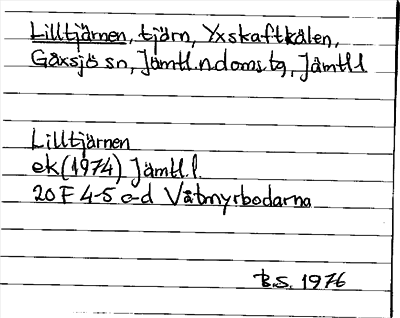 Lilltjärnen, tjärn, Yxskaftkälen,
Gåxsjö sn, Jämtl.n doms tg, Jämtl l
Lilltjärnen
ek (1974) Jämtl. l.
20 F 4-5 c-d Våtmyrbodarna
B.S. 1976